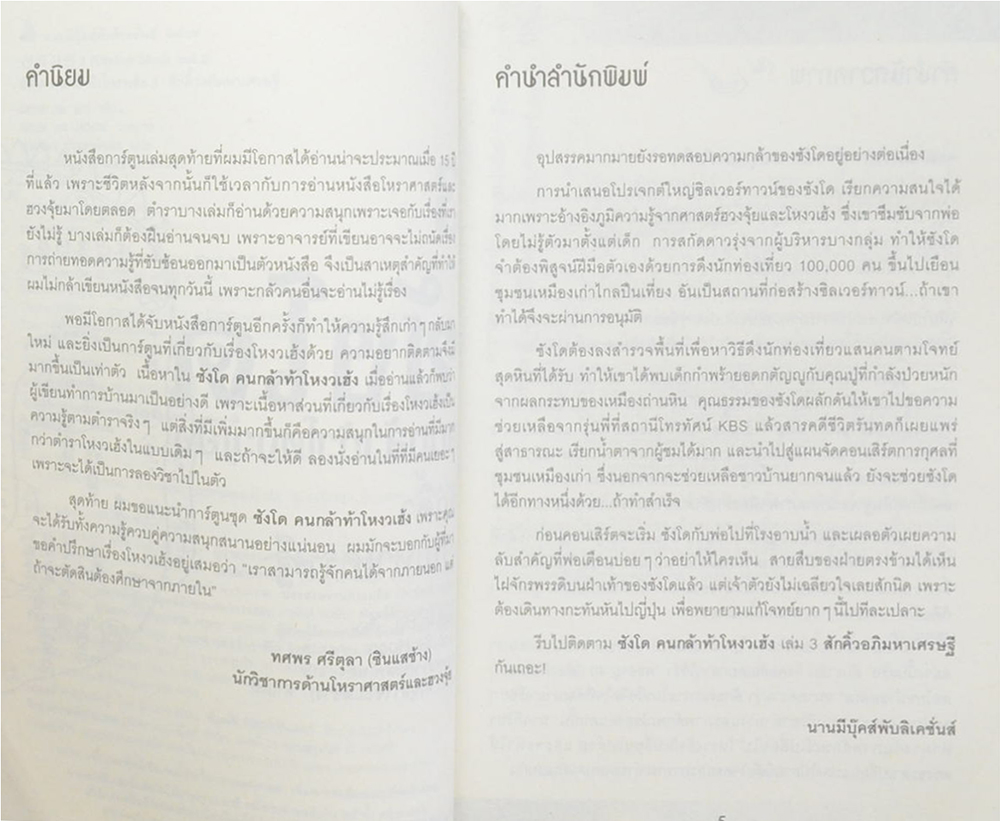 คำนิยม
หนังสือการ์ตูนเล่มสุดท้ายที่ผมมีโอกาสได้อ่านน่าจะประมาณเมื่อ 15 ปี
ที่แล้ว เพราะชีวิตหลังจากนั้นก็ใช้เวลากับการอ่านหนังสือโหราศาสตร์และ
ฮวงจุ้ยมาโดยตลอด ตำราบางเล่มก็อ่านด้วยความสนุกเพราะเจอกับเรื่องที่เรา
ยังไม่รู้ บางเล่มก็ต้องฝืนอ่านจนจบ เพราะอาจารย์ที่เขียนอาจจะไม่ถนัดเรื่อง
การถ่ายทอดความรู้ที่ซับซ้อนออกมาเป็นตัวหนังสือ จึงเป็นสาเหตุสำคัญที่ทำให้
ผมไม่กล้าเขียนหนังสือจนทุกวันนี้ เพราะกลัวคนอื่นจะอ่านไม่รู้เรื่อง
พอมีโอกาสได้จับหนังสือการ์ตูนอีกครั้งก็ทำให้ความรู้สึกเก่าๆ กลับมา
ใหม่ และยิ่งเป็นการ์ตูนที่เกี่ยวกับเรื่องโหงวเฮ้งด้วย ความอยากติดตามจึงมี
มากขึ้นเป็นเท่าตัว เนื้อหาใน ซังโด คนกล้าท้าโหงวเฮ้ง เมื่ออ่านแล้วก็พบว่า
ผู้เขียนทำการบ้านมาเป็นอย่างดี เพราะเนื้อหาส่วนที่เกี่ยวกับเรื่องโหงวเฮ้งเป็น
ความรู้ตามตำราจริงๆ แต่สิ่งที่มีเพิ่มมากขึ้นก็คือความสนุกในการอ่านที่มีมาก
กว่าตำราโหงวเฮ้งในแบบเดิมๆ และถ้าจะให้ดี ลองนั่งอ่านในที่ที่มีคนเยอะๆ
เพราะจะได้เป็นการลองวิชาไปในตัว
สุดท้าย ผมขอแนะนำการ์ตูนชุด ซังโด คนกล้าท้าโหงวเฮ้ง เพราะคุณ
จะได้รับทั้งความรู้ควบคู่ความสนุกสนานอย่างแน่นอน ผมมักจะบอกกับผู้ที่มา
ขอคำปรึกษาเรื่องโหงวเฮ้งอยู่เสมอว่า "เราสามารถรู้จักคนได้จากภายนอก แต่
ถ้าจะตัดสินต้องศึกษาจากภายใน"
ทศพร ศรีตุลา (ซินแสช้าง)
นักวิชาการด้านโหราศาสตร์และฮวงจุ้ย
คำนำสำนักพิมพ์
อุปสรรคมากมายยังรอทดสอบความกล้าของซังโดอยู่อย่างต่อเนื่อง
การนำเสนอโปรเจกต์ใหญ่ซิลเวอร์ทาวน์ของซังโด เรียกความสนใจได้
มากเพราะอ้างอิงภูมิความรู้จากศาสตร์ฮวงจุ้ยและโหงวเฮ้ง ซึ่งเขาซึมซับจากพ่อ
โดยไม่รู้ตัวมาตั้งแต่เด็ก การสกัดดาวรุ่งจากผู้บริหารบางกลุ่ม ทำให้ซังโด
จำต้องพิสูจน์ฝีมือตัวเองด้วยการดึงนักท่องเที่ยว 100,000 คน ขึ้นไปเยือน
ชุมชนเหมืองเก่าไกลปืนเที่ยง อันเป็นสถานที่ก่อสร้างซิลเวอร์ทาวน์...ถ้าเขา
ทำได้จึงจะผ่านการอนุมัติ
ซังโดต้องลงสำรวจพื้นที่เพื่อหาวิธีดึงนักท่องเที่ยวแสนคนตามโจทย์
สุดหินที่ได้รับ ทำให้เขาได้พบเด็กกำพร้ายอดกตัญญูกับคุณปู่ที่กำลังป่วยหนัก
จากผลกระทบของเหมืองถ่านหิน คุณธรรมของซังโดผลักดันให้เขาไปขอความ
ช่วยเหลือจากรุ่นพี่ที่สถานีโทรทัศน์ KBS แล้วสารคดีชีวิตรันทดก็เผยแพร่
สู่สาธารณะ เรียกน้ำตาจากผู้ชมได้มาก และนำไปสู่แผนจัดคอนเสิร์ตการกุศลที่
ชุมชนเหมืองเก่า ซึ่งนอกจากจะช่วยเหลือชาวบ้านยากจนแล้ว ยังจะช่วยซังโด
ได้อีกทางหนึ่งด้วย...ถ้าทำสำเร็จ
ก่อนคอนเสิร์ตจะเริ่ม ซังโดกับพ่อไปที่โรงอาบน้ำ และเผลอตัวเผยความ
ลับสำคัญที่พ่อเตือนบ่อยๆ ว่าอย่าให้ใครเห็น สายสืบของฝ่ายตรงข้ามได้เห็น
ไฝจักรพรรดิบนฝ่าเท้าของซังโดแล้ว แต่เจ้าตัวยังไม่เฉลียวใจเลยสักนิด เพราะ
ต้องเดินทางกะทันหันไปญี่ปุ่น เพื่อพยายามแก้โจทย์ยากๆ นี้ไปทีละเปลาะ
รีบไปติดตาม ซังโด คนกล้าท้าโหงวเฮ้ง เล่ม 3 สักคิ้วอภิมหาเศรษฐี
กันเถอะ!
นานมีบุ๊คส์พับลิเคชั่นส์